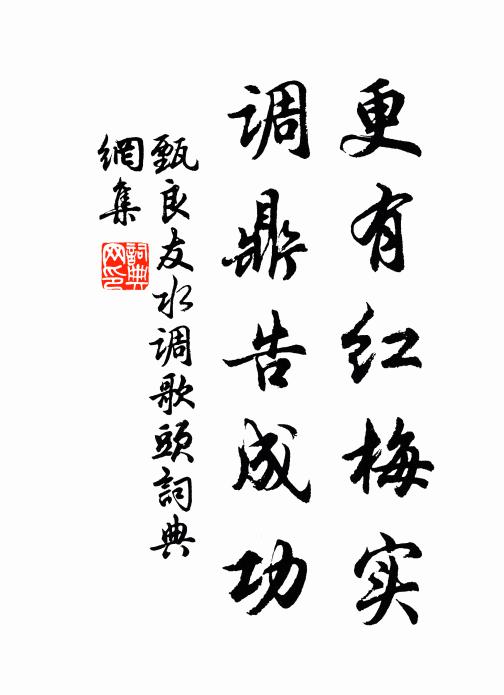 更有红梅实
调鼎告成功
甄良友水调歌头詞典
網集
詞典
网印